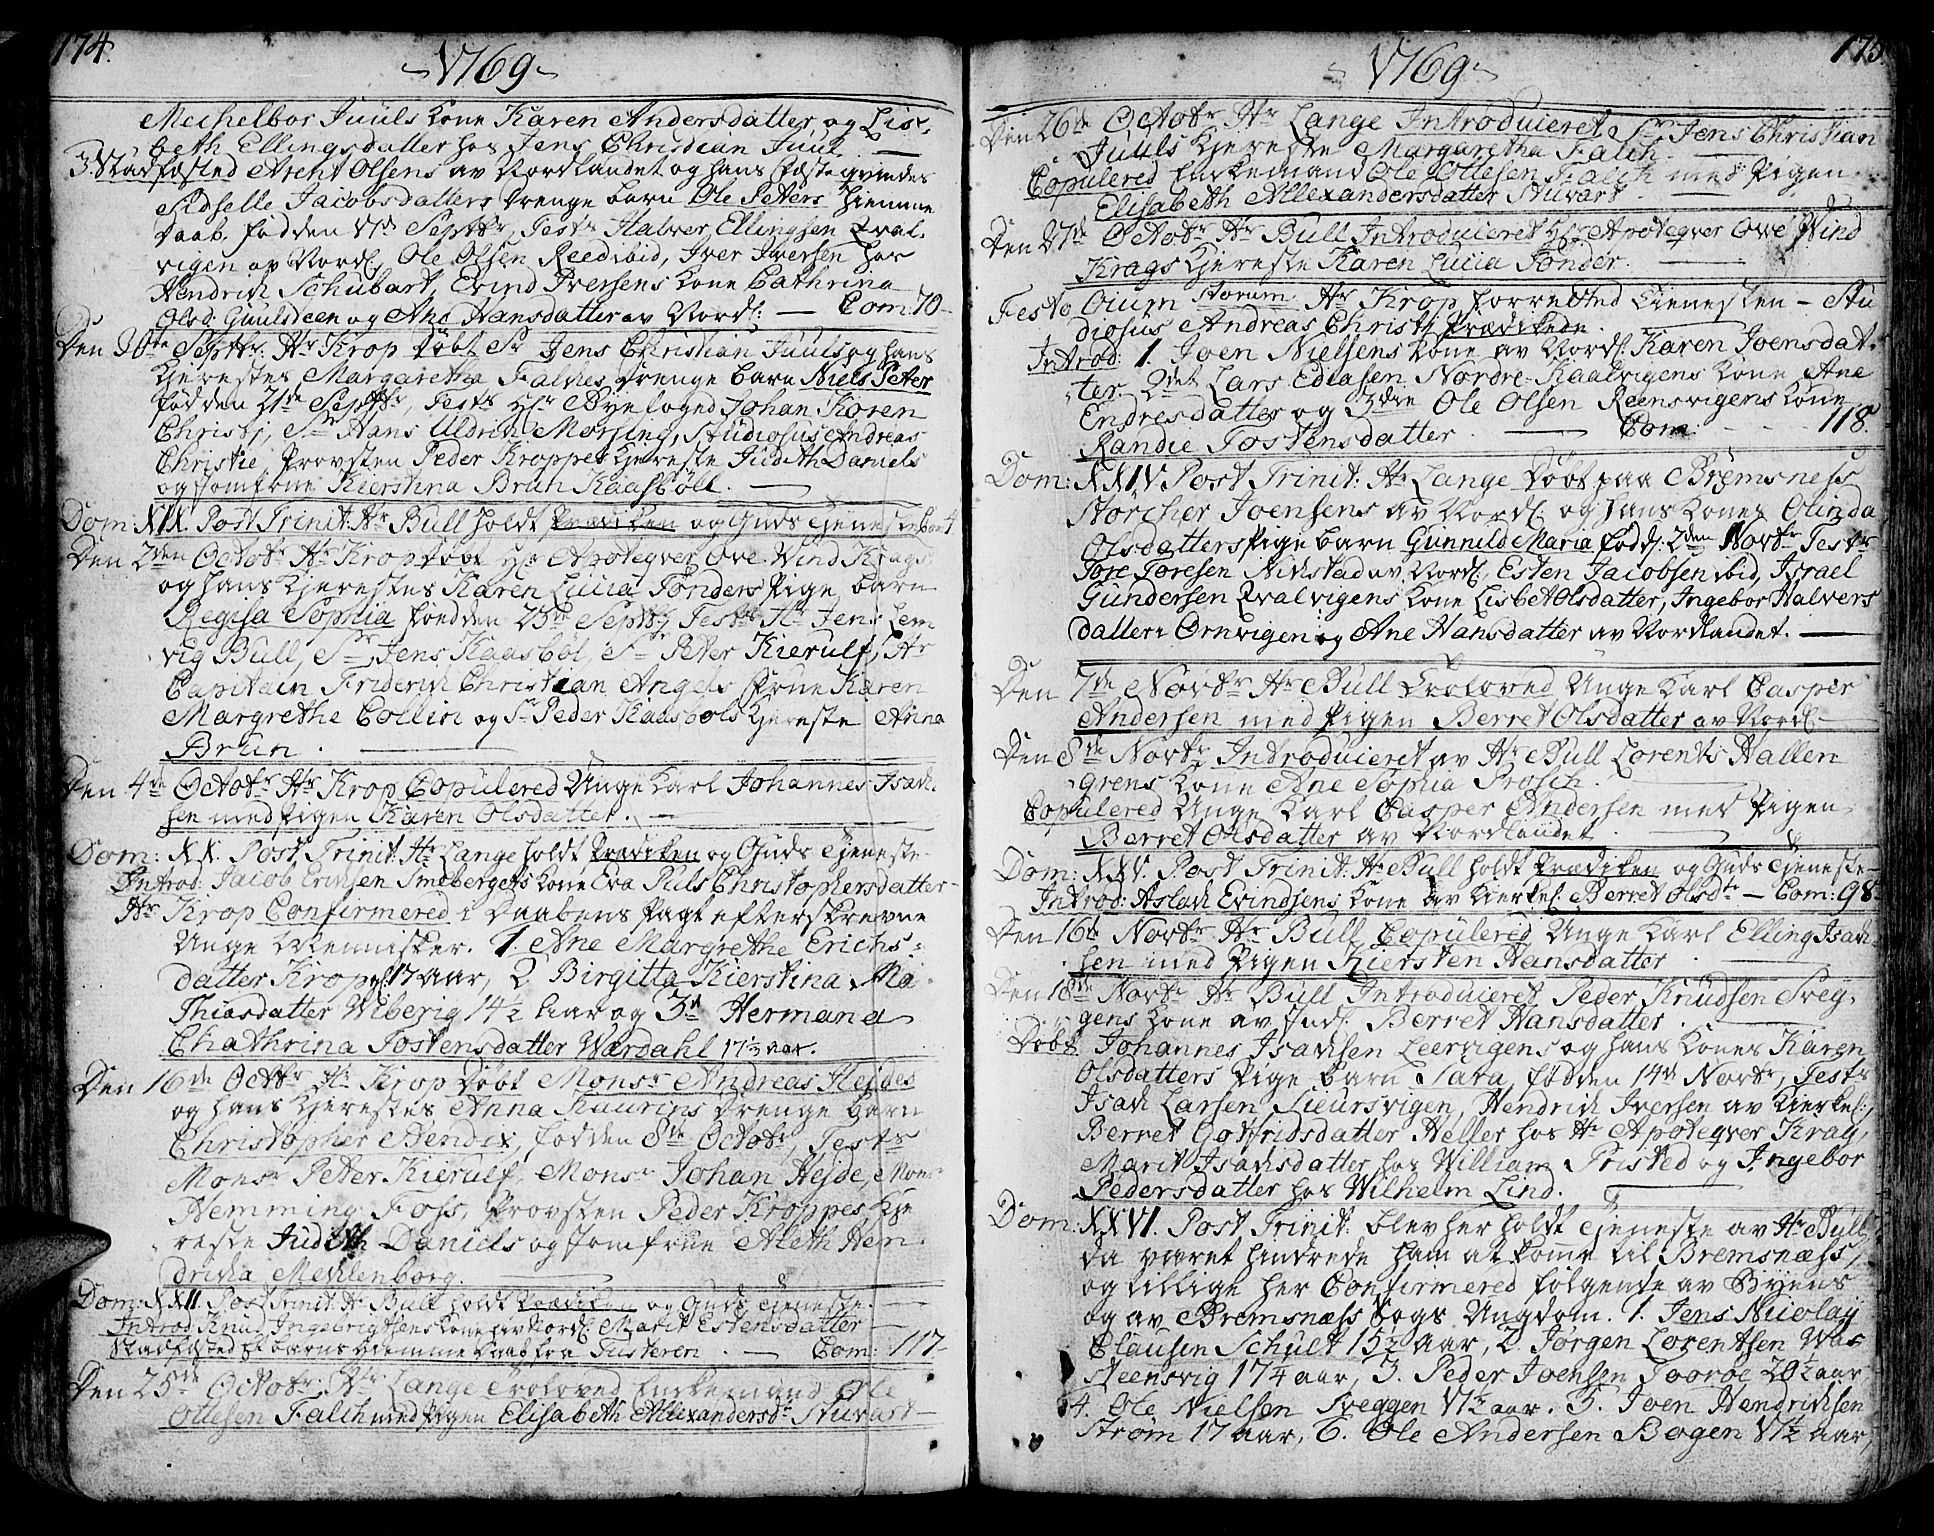 174.
1769
Mechelbor Juuls Kone Karen Andersdatter og Lis-
beth Ellingsdatter hos Jens Christian Juul.
3. Stadfæsted Arent Olsens av Nordlandet og hans Fæste qvindes
Sidselle Jacobsdatters drenge barn Ole Peters hiemme
daab, fød den 17de Septbr, Testr Halver Ellingsen Qval-
vigen av Nordl, Ole Olsen Reed ibid, Iver Iversen hos
Hendrich Schubart, Evind Iversens Kone Cathrina
Olsd: Guulsdeen og Ane Hansdatter av Nordl: Com: 70
Den 30te Septbr: Hr Krop døbt Sr Jens Christian Juuls og hans
Kjerestes Margaretha Falches drenge barn Niels Peter
fød den 21de Septbr, Testr Hr Byefoged Johan Koren
Christj, Sr Hans Uldrich Morsing, Studiosus Andreas
Christie, Provsten Peder Kroppes Kjereste Judith Daniels
og Jomfrue Kierstina Brun Kaasbøll.
Dom: XIX. Post Trinit: Hr Bull holdt Prædiken og Guds Tjeneste
Den 2den Octobr Hr Krop døbt Hr Apoteqver Ove Vind Krags
og hans Kjerestes Karen Lucia Tønders Pige barn
Regisa Sophia fød den 23de Septbr Testr Hr Jens Lem
vig Bull, Sr Jens Kaasbøl, Sr Peter Kierulf, Hr
Capitain Friderich Christian Angels Frue Karen
Margrethe Collin og Sr Peder Kaasbøls Kjereste Anna
Brun.
Den 4de Octobr Hr Krop Copulered Unge Karl Johannes Isach-
sen med Pigen Karen Olsdatter.
Dom: XX. Post Trinit: Hr Lange holdt Prædiken og Guds Tjeneste
Introd: Jacob Erichsen Smebergets Kone Eva Puls Christophersdatter
Hr Krop Confirmered i Daabens Pagt efterskrevne
Unge Mennisker. 1. Ane Margrethe Erichs-
datter Krop 17 Aar, 2 Birgitta Kierstina Ma-
thiasdatter Wiberig 14½ Aar og 3d Hermana
Chathrina Tostensdatter Wardahl 17½ aar.
Den 16de Octbr Hr Krop døbt Monsr Andreas Hejdes
og hans Kjerestes Anna Kaurins drenge barn
Christopher Bendix, fød den 8de Octobr, Testr
Monsr Peter Kierulf, Monsr Johan Hejde, Monsr
Hemming Foss, Provsten Peder Kroppes Kje
reste Judith Daniels og Jomfrue Aleth Hen
dricha Mechlenborg.
Dom: XXII. Post Trinit: Hr Bull holdt Prædiken og Guds Tjeneste.
Introd: Knud Ingebrigtsens Kone av Nordl. Marit Estensdatter
Stadfæsted et barns hiemme daab fra Tusteren. Com: 117
Den 25de Octobr: Hr Lange Troloved Enckemand Ole
Ottesen Falch med Pigen Elisabeth Allexandersdr Stuvart
175.
1769
Den 26de Octobr Hr Lange Introducieret Sr Jens Christian
Juuls Kjereste Margaretha Falch.
Copulered Enckemand Ole Ottesen Falch med Pigen
Elisabeth Allexandersdatter Stuvart.
Den 27de Octobr Hr Bull Introducieret Hr Apoteqver Ove Wind
Krags Kjereste Karen Lucia Tønder.
Festo Oium Storum Hr Krop forrested Tienesten – Stu
diosus Andreas Christi Prædikede.
Introd: 1. Joen Nielsens Kone av Nordl: Karen Joensdat-
ter 2det Lars Ediasen Nordre-Kaalvigens Kone Ane
Endresdatter og 3die Ole Olsen Reensvigens Kone
Randie Tostensdatter. Com: 118
Dom: XXIV. Post Trinit: Hr Lange døbt paa Bremsness
Størcher Joensens av Nordl: og hans Kones Olinda
Olsdatters Pige barn Gunnild Maria fødd: 2den Novbr, Testr
Tore Toresen Nichstad av Nordl, Esten Jacobsen ibid, Israel
Gundersen Qvalvigens Kone Lisbet Olsdatter, Ingebor Halvers
datter i Ørnvigen og Ane Hansdatter av Nordlandet.
Den 7de Novbr Hr Bull Troloved Unge Karl Casper
Andersen med Pigen Berret Olsdatter av Nordl.
Den 8de Novbr Introducieret av Hr Bull Lorents Hallen
grens Kone Ane Sophia Prosch.
Copulered Unge Karl Casper Andersen med Pigen
Berret Olsdatter av Nordlandet.
Dom: XXV. Post Trinit: Hr Bull holdt Prædiken og Guds Tjeneste
Introd: Aslach Evindsens Kone av Kierkel: Berret Olsdr – Com: 98
Den 16de Novbr Hr Bull Copulered Unge Karl Elling Isach-
sen med Pigen Kiersten Hansdatter.
Den 18de Novbr Hr Bull Introducieret Peder Knudsen Sveg-
gens Kone av Indl. Berret Hansdatter.
Døbt Johannes Isachsen Leervigens og hans Kones Karen
Olsdatters Pige barn Sara, fød den 14de Novbr, Testr
Isach Larsen Sieursvigen, Hendrich Iversen av Kierkel:,
Berret Gotfridsdatter Heller hos Hr Apoteqver Krag,
Marit Isachsdatter hos William Pristed og Ingebor
Pedersdatter hos Wilhelm Lind.
Dom: XXVI. Post Trinit: blev her holdt Tjeneste av Hr Bull
da været hindrede ham at komme til Bremsnæss,
og tillige her Confirmered følgende av Byens
og av Bremsnæss Sogs Ungdom. 1. Jens Nicolay
Clausen Schult 15½ aar, 2 Jørgen Lorentsen Was
Steensvig 17¼ aar, 3. Peder Joensen Toorøe 20½ aar,
4. Ole Nielsen Sveggen 17½ aar. 5. Joen Hendrichsen
Strøm 17 aar, 6. Ole Andersen Bogen 17½ aar,